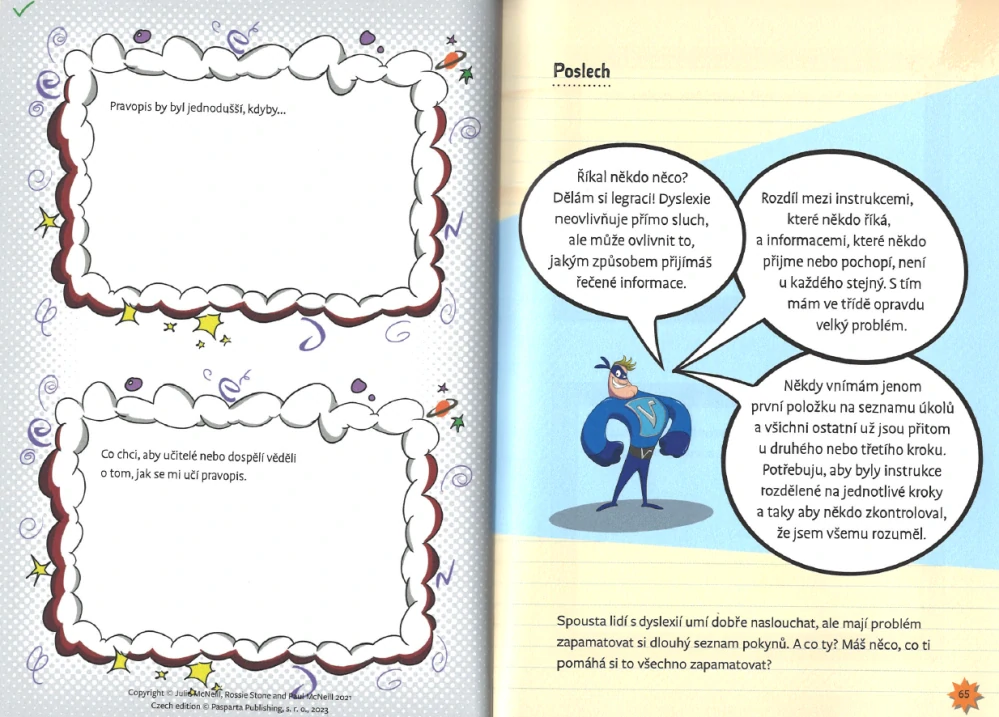 Pravopis by byl jednodušší, kdyby...
Co chci, aby učitelé nebo dospělí věděli
o tom, jak se mi učí pravopis.
Copyright © Julie McNeill, Rossie Stone and Paul McNeill 2021
Czech edition © Pasparta Publishing, s. r. o., 2023
Poslech
Říkal někdo něco?
Dělám si legraci! Dyslexie
neovlivňuje přímo sluch,
ale může ovlivnit to,
jakým způsobem přijímáš
řečené informace.
Rozdíl mezi instrukcemi,
které někdo říká,
a informacemi, které někdo
přijme nebo pochopí, není
u každého stejný. S tím
mám ve třídě opravdu
velký problém.
Někdy vnímám jenom
první položku na seznamu úkolů
a všichni ostatní už jsou přitom
u druhého nebo třetího kroku.
Potřebuju, aby byly instrukce
rozdělené na jednotlivé kroky
a taky aby někdo zkontroloval,
že jsem všemu rozuměl.
Spousta lidí s dyslexií umí dobře naslouchat, ale mají problém
zapamatovat si dlouhý seznam pokynů. A co ty? Máš něco, co ti
pomáhá si to všechno zapamatovat?
65